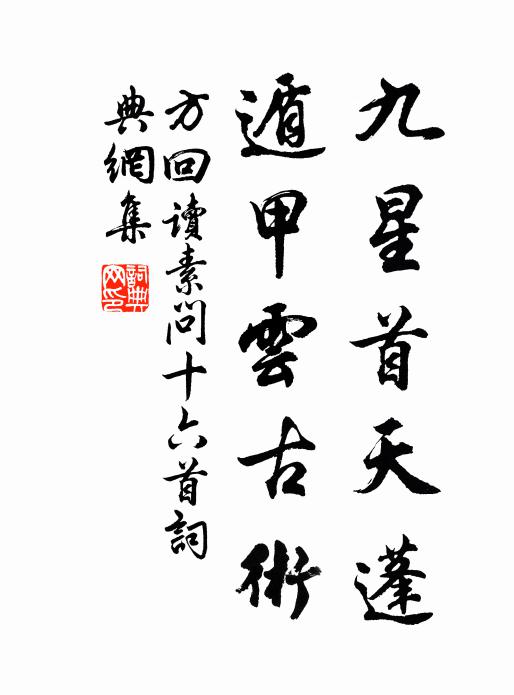 九星首天蓬
遁甲雲古術
方回讀素問十六首詞
典網集
詞典网印